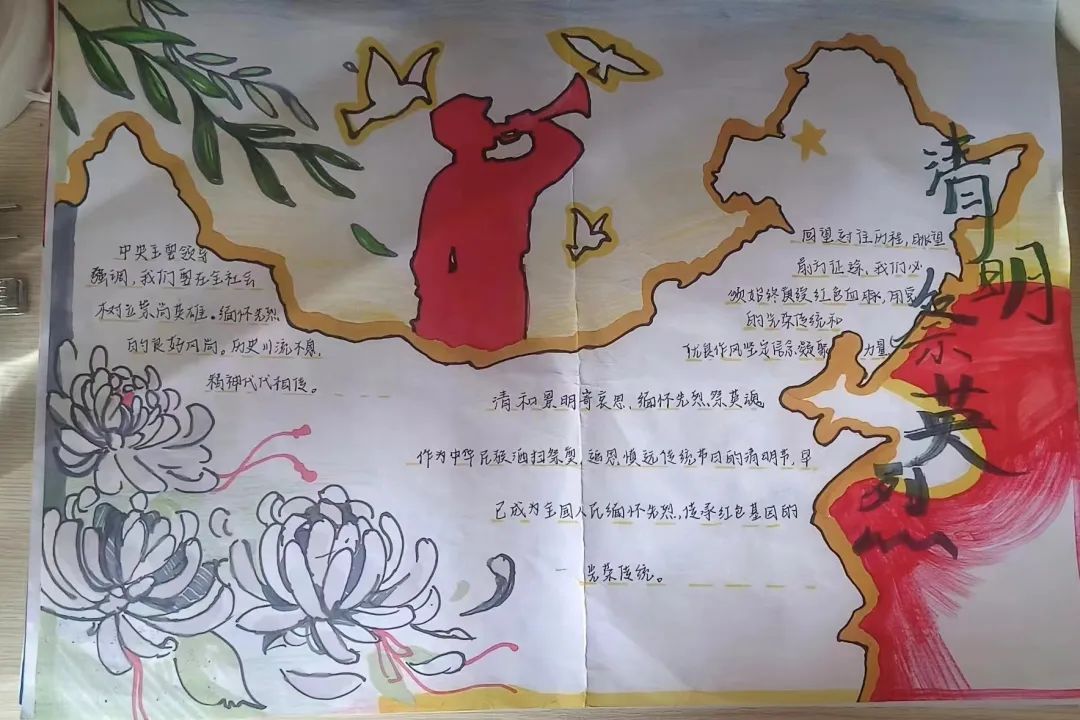 清明祭英烈
中央主要领导
强调，我们要在全社会
树立崇尚英雄。缅怀先烈
的良好风尚。历史川流不息，
精神代代相传。
回望过往历程，眺望
前方征途，我们必
须始终赓续红色血脉，用
的光荣传统和
优良作风坚定信念凝聚力量
清和景明寄哀思，缅怀先烈祭英魂
作为中华民族洒扫祭奠，追思慎远传统节日的清明节，早
已成为全国人民缅怀先烈，传承红色基因的
光荣传统。